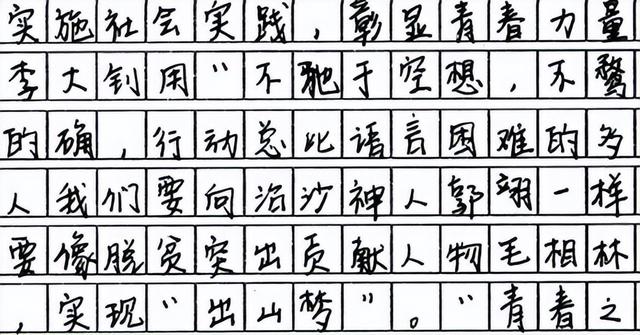 实施社会实践，彰显青春力量
李大钊用“不驰于空想，不鹜
的确，行动总比语言困难的多
人我们要向治沙神人郭翊一样
要像脱贫突出贡献人物毛相林
，实现“出山梦”。“青春之